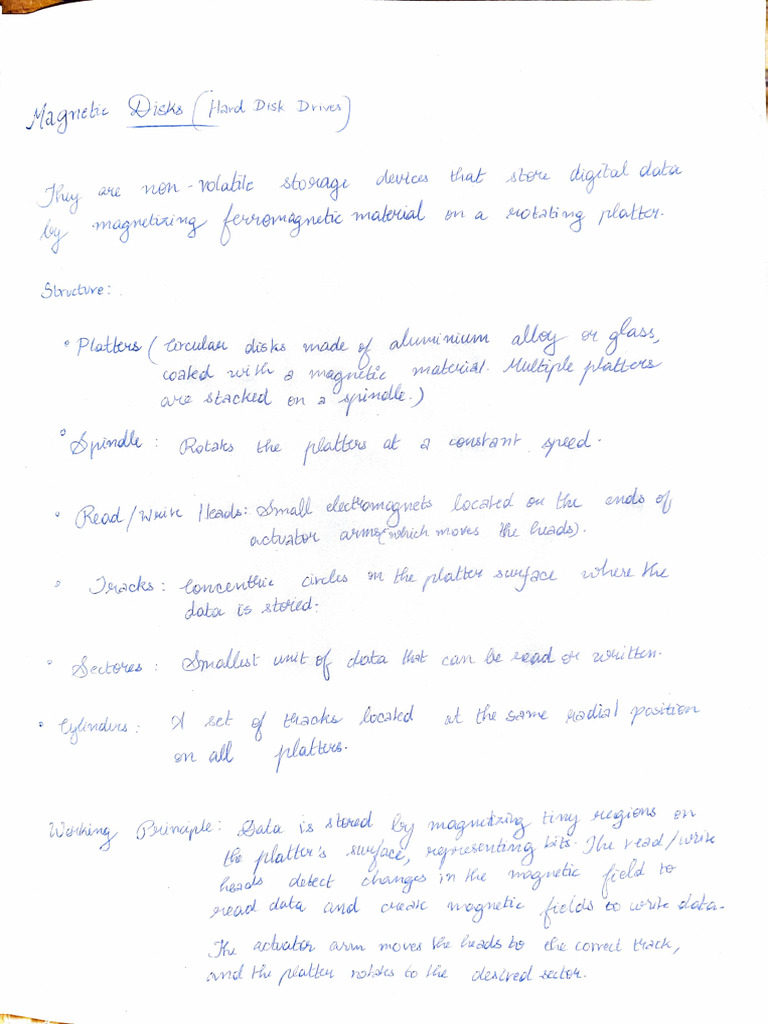 Magnetic Disks (Hard Disk Drives)
They are non-volatile storage devices that store digital data
by magnetizing ferromagnetic material on a rotating platter.
Structure:
• Platters (Circular disks made of aluminium alloy or glass,
coated with a magnetic material. Multiple platters
are stacked on a spindle.)
• Spindle: Rotates the platters at a constant speed.
• Read/Write Heads: Small electromagnets located on the ends of
actuator arms (which moves the heads).
• Tracks: Concentric circles on the platter surface where the
data is stored.
• Sectores: Smallest unit of data that can be read or written.
• Cylinders: A set of tracks located at the same radial position
on all platters.
Working Principle: Data is stored by magnetizing tiny regions on
the platter's surface, representing bits. The read/write
heads detect changes in the magnetic field to
read data and create magnetic fields to write data.
The actuator arm moves the heads to the correct track,
and the platter rotates to the desired sector.